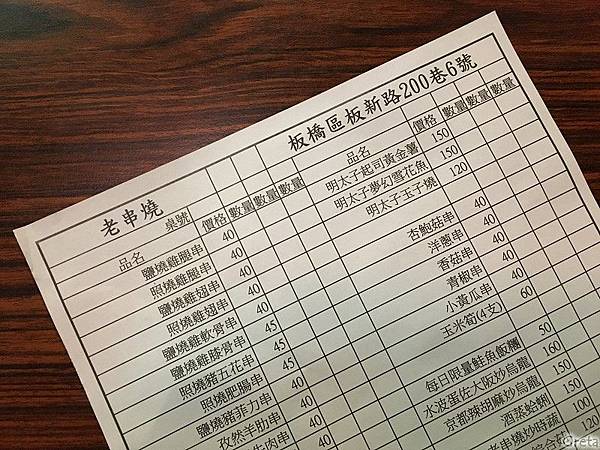 板橋區板新路200巷6號
老串燒 桌號
品名 價格 數量 數量 數量
鹽燒雞腿串 40
照燒雞腿串 40
鹽燒雞翅串 40
照燒雞翅串 40
鹽燒雞軟骨串 40
鹽燒雞膝骨串 45
照燒豬五花串 45
照燒肥腸串 45
鹽燒豬菲力串 40
孜然羊肋串 40
牛肉串 40
品名 價格 數量 數量 數量
明太子起司黃金薯 150
明太子夢幻雪花魚 150
明太子玉子燒 120
杏鮑菇串 40
洋蔥串 40
香菇串 40
青椒串 40
小黃瓜串 40
玉米筍(4支) 60
每日限量鮭魚飯糰 50
水波蛋佐大阪炒烏龍 160
京都辣胡麻炒烏龍 150
酒蒸蛤蜊 150
老串燒炒時蔬 100
綜合菇 120